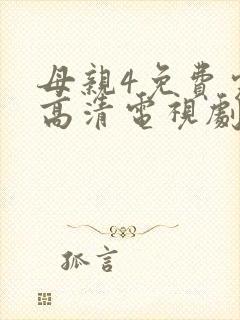 母親4免費
高清電視劇
孤言